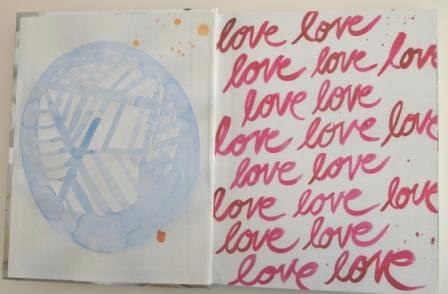 love love
love love love
love love
love love love
love love
love love love
love love
love love